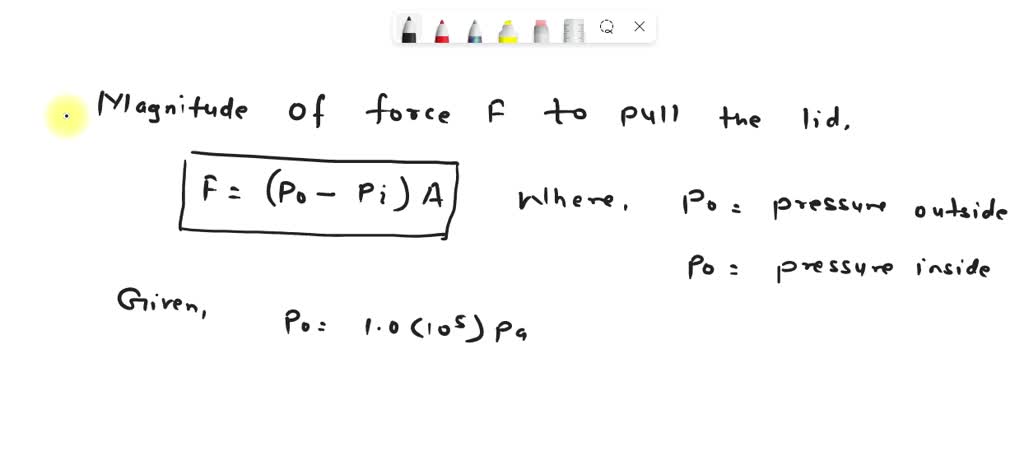 Magnitude of force F to pull the lid.
F = (Po - Pi) A Where, Po = pressure outside
Po = pressure inside
Given, Po = 1.0 (10⁵) Pa